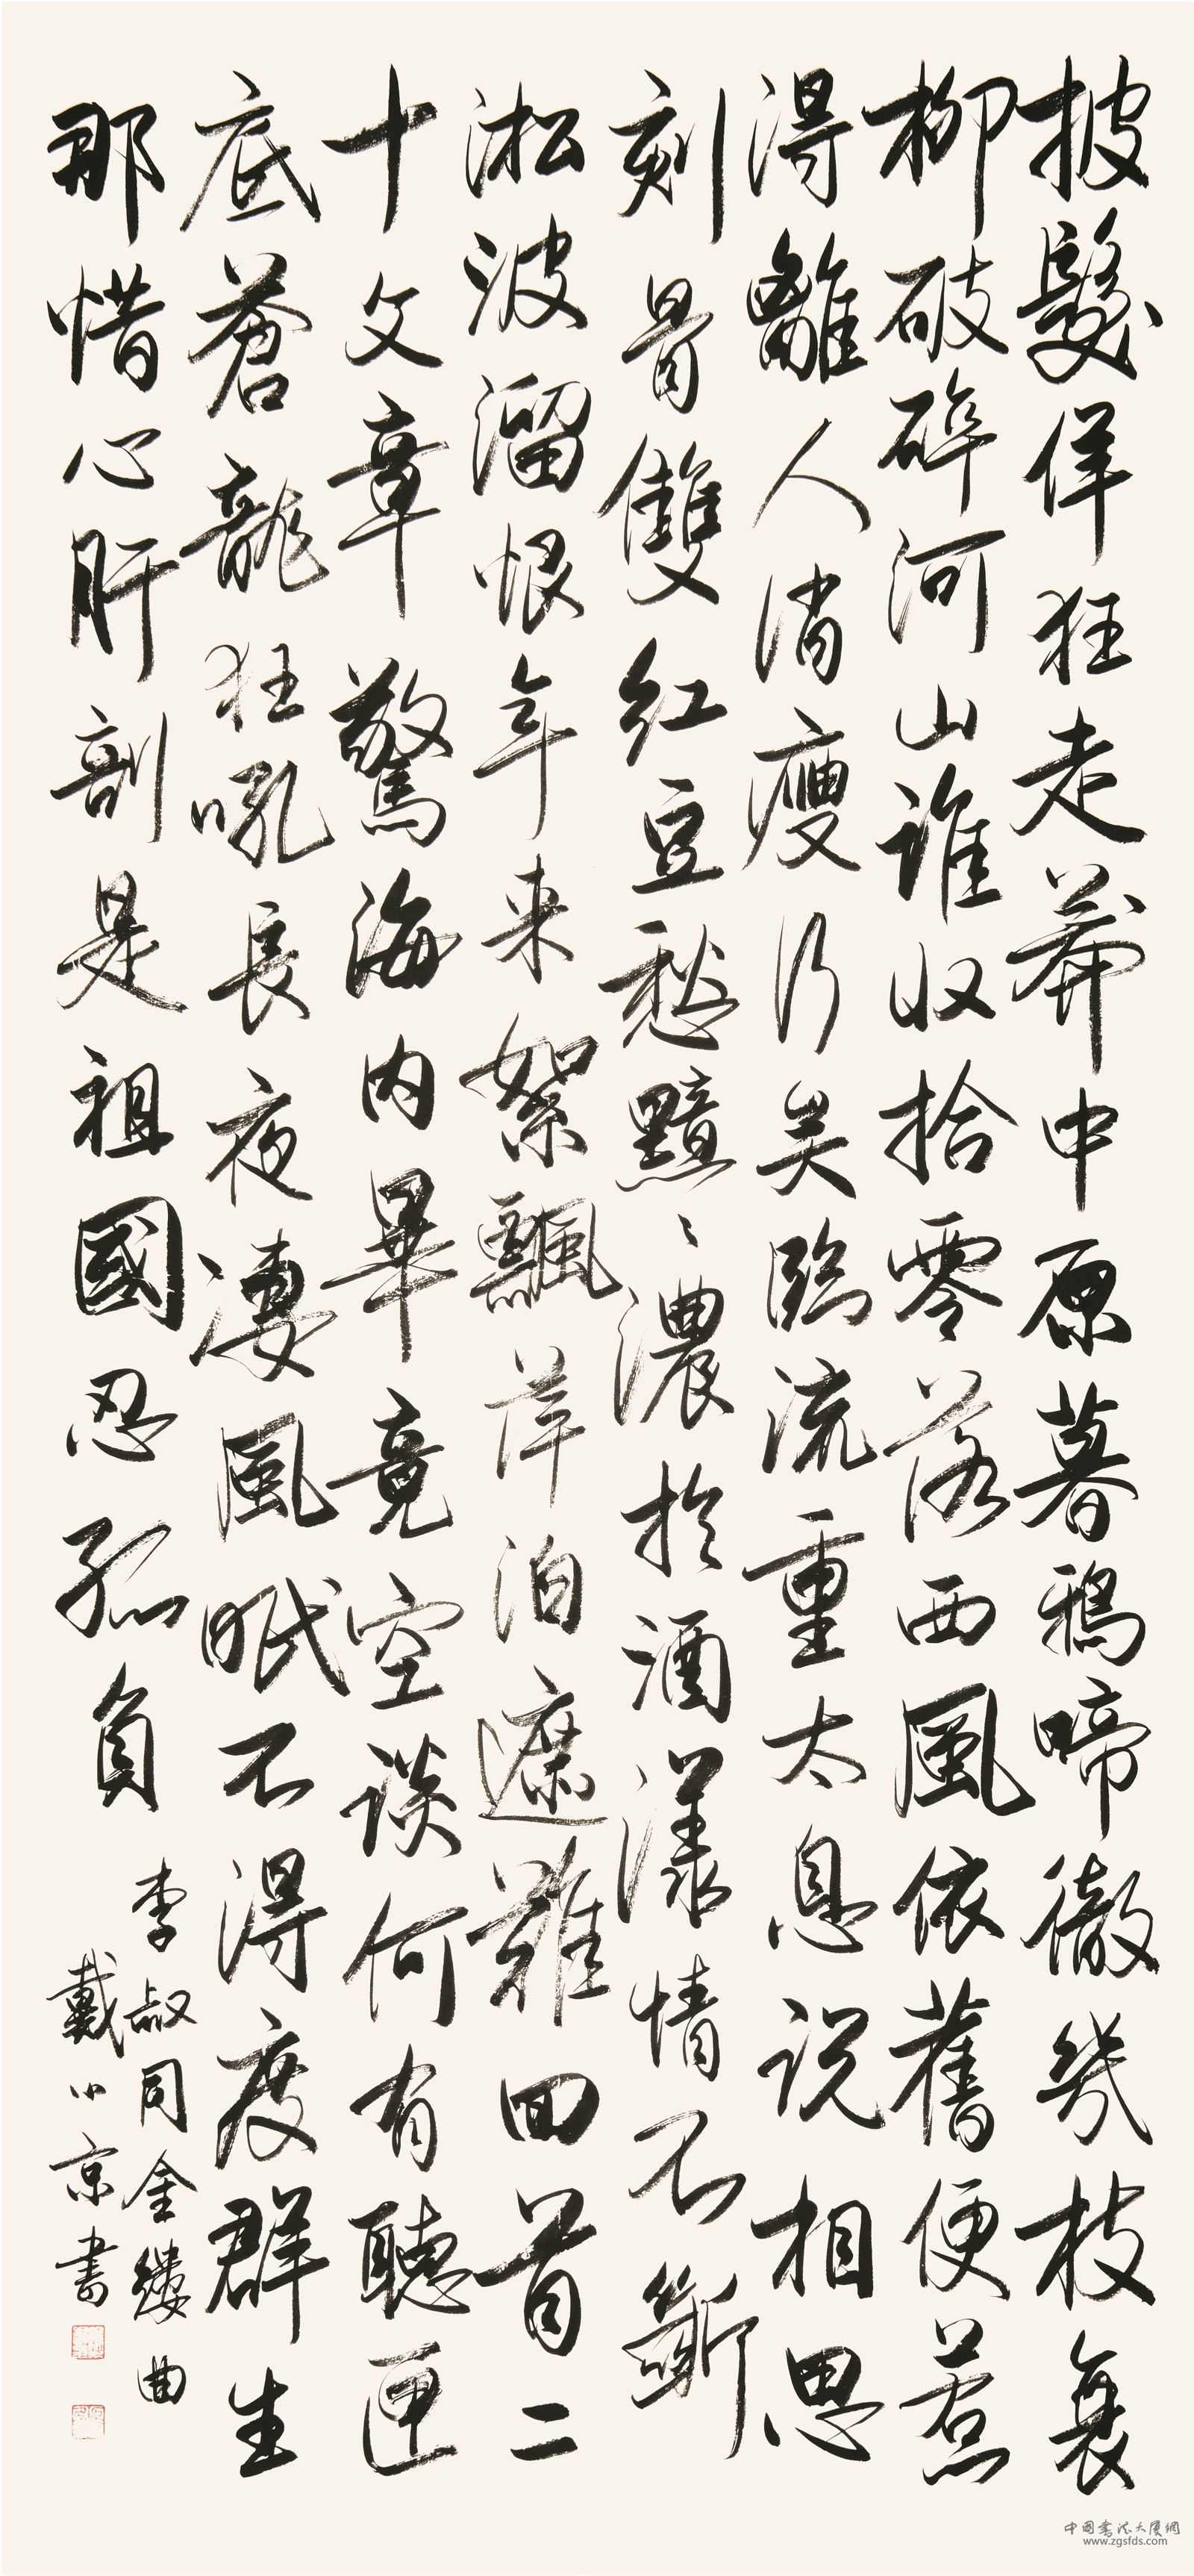 披髮佯狂走莽中原暮鴉啼徹幾枝衰
柳破碎河山誰收拾零落西風依舊便惹
得離人消瘦行矣臨流重太息说相思
刻骨雙紅豆愁黯〻濃於酒漾情不斷
淞波溜恨年来絮飄萍泊遮難回首二
十文章驚海内畢竟空談何有聽匣
底蒼龍狂吼長夜淒風眠不得度群生
那惜心肝剖是祖國忍孤負
李叔同金縷曲
戴小京書
中國書法大厦網
www.zgsfds.com